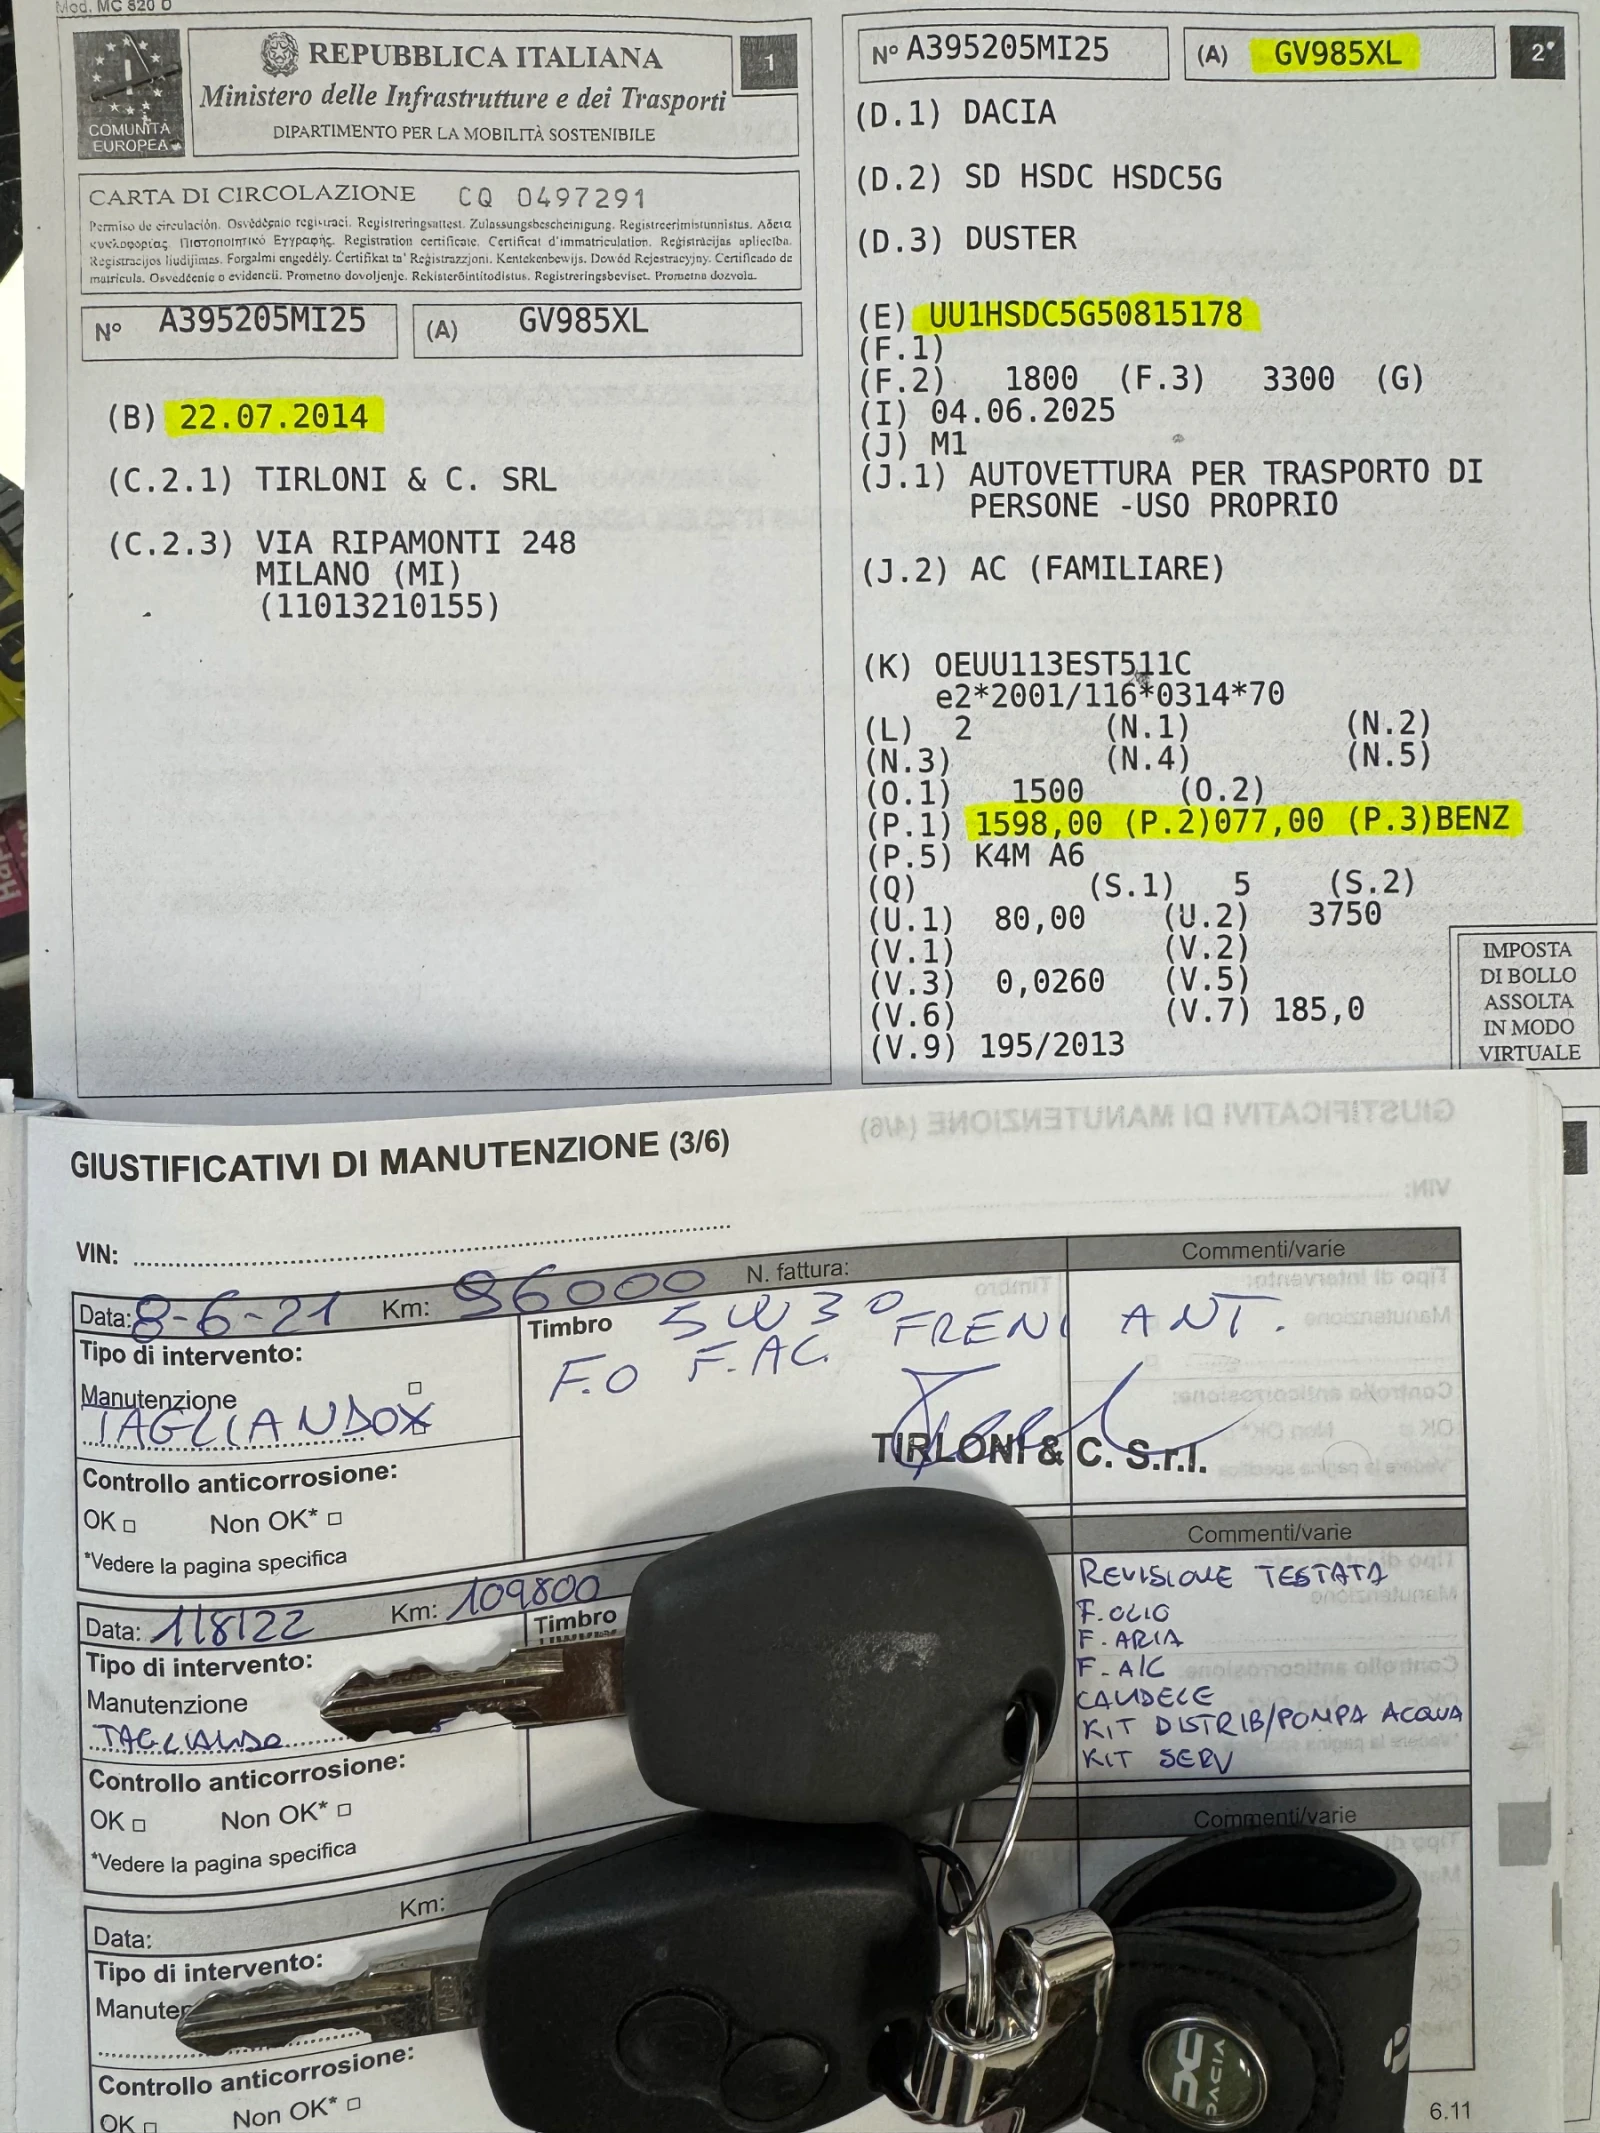 Mod. MC 820 D
COMUNITÀ
EUROPEA
REPUBBLICA ITALIANA
Ministero delle Infrastrutture e dei Trasporti
DIPARTIMENTO PER LA MOBILITÀ SOSTENIBILE
1
CARTA DI CIRCOLAZIONE CQ 0497291
Permiso de circulación. Osvědčenío registraci. Registreringsattest. Zulassungsbescheinigung. Registreerimistunnistus. Αδεια
κυκλοφορίας. Πιστοποιητικό Εγγραφής. Registration certificate. Certificat d'immatriculation. Reģistrācijas apliecība.
Registracijos liudijimas. Forgalmi engedély. Certifikat ta' Reġistrazzjoni. Kentekenbewijs. Dowód Rejestracyjny. Certificado de
matrícula. Osvedčenie o evidencii. Prometno dovoljenje. Rekisteröintitodistus. Registreringsbeviset. Prometna dozvola.
Nº A395205MI25
(A) GV985XL
(B) 22.07.2014
(C.2.1) TIRLONI & C. SRL
(C.2.3) VIA RIPAMONTI 248
MILANO (MI)
(11013210155)
Nº A395205MI25
(A) GV985XL
2
(D.1) DACIA
(D.2) SD HSDC HSDC5G
(D.3) DUSTER
(E) UU1HSDC5G50815178
(F.1)
(F.2) 1800 (F.3) 3300 (G)
(I) 04.06.2025
(J) M1
(J.1) AUTOVETTURA PER TRASPORTO DI
PERSONE -USO PROPRIO
(J.2) AC (FAMILIARE)
(K) OEUU113EST511C
e2*2001/116*0314*70
(L) 2 (N.1) (N.2)
(N.3) (N.4) (N.5)
(O.1) 1500 (O.2)
(P.1) 1598,00 (P.2)077,00 (P.3)BENZ
(P.5) K4M A6
(Q) (S.1) 5 (S.2)
(U.1) 80,00 (U.2) 3750
(V.1) (V.2)
(V.3) 0,0260 (V.5)
(V.6) (V.7) 185,0
(V.9) 195/2013
IMPOSTA
DI BOLLO
ASSOLTA
IN MODO
VIRTUALE
GIUSTIFICATIVI DI MANUTENZIONE (3/6)
VIN:
Data: 8-6-21 Km: 96000 N. fattura:
Commenti/varie
Tipo di intervento:
Timbro
5W30 FRENI ANT.
F.O F.AC.
Manutenzione
TAGLIANDO X
TIRLONI & C. S.r.l.
Controllo anticorrosione:
OK Non OK*
*Vedere la pagina specifica
Data: 1/8/22 Km: 109800
Commenti/varie
Tipo di intervento:
Timbro
Manutenzione
TAGLIANDO
REVISIONE TESTATA
F. OLIO
F. ARIA
F. A/C
CANDELE
KIT DISTRIB/POMPA ACQUA
KIT SERV
Controllo anticorrosione:
OK Non OK*
*Vedere la pagina specifica
Data: Km:
Commenti/varie
Tipo di intervento:
Controllo anticorrosione:
OK Non OK*
DACIA
6.11